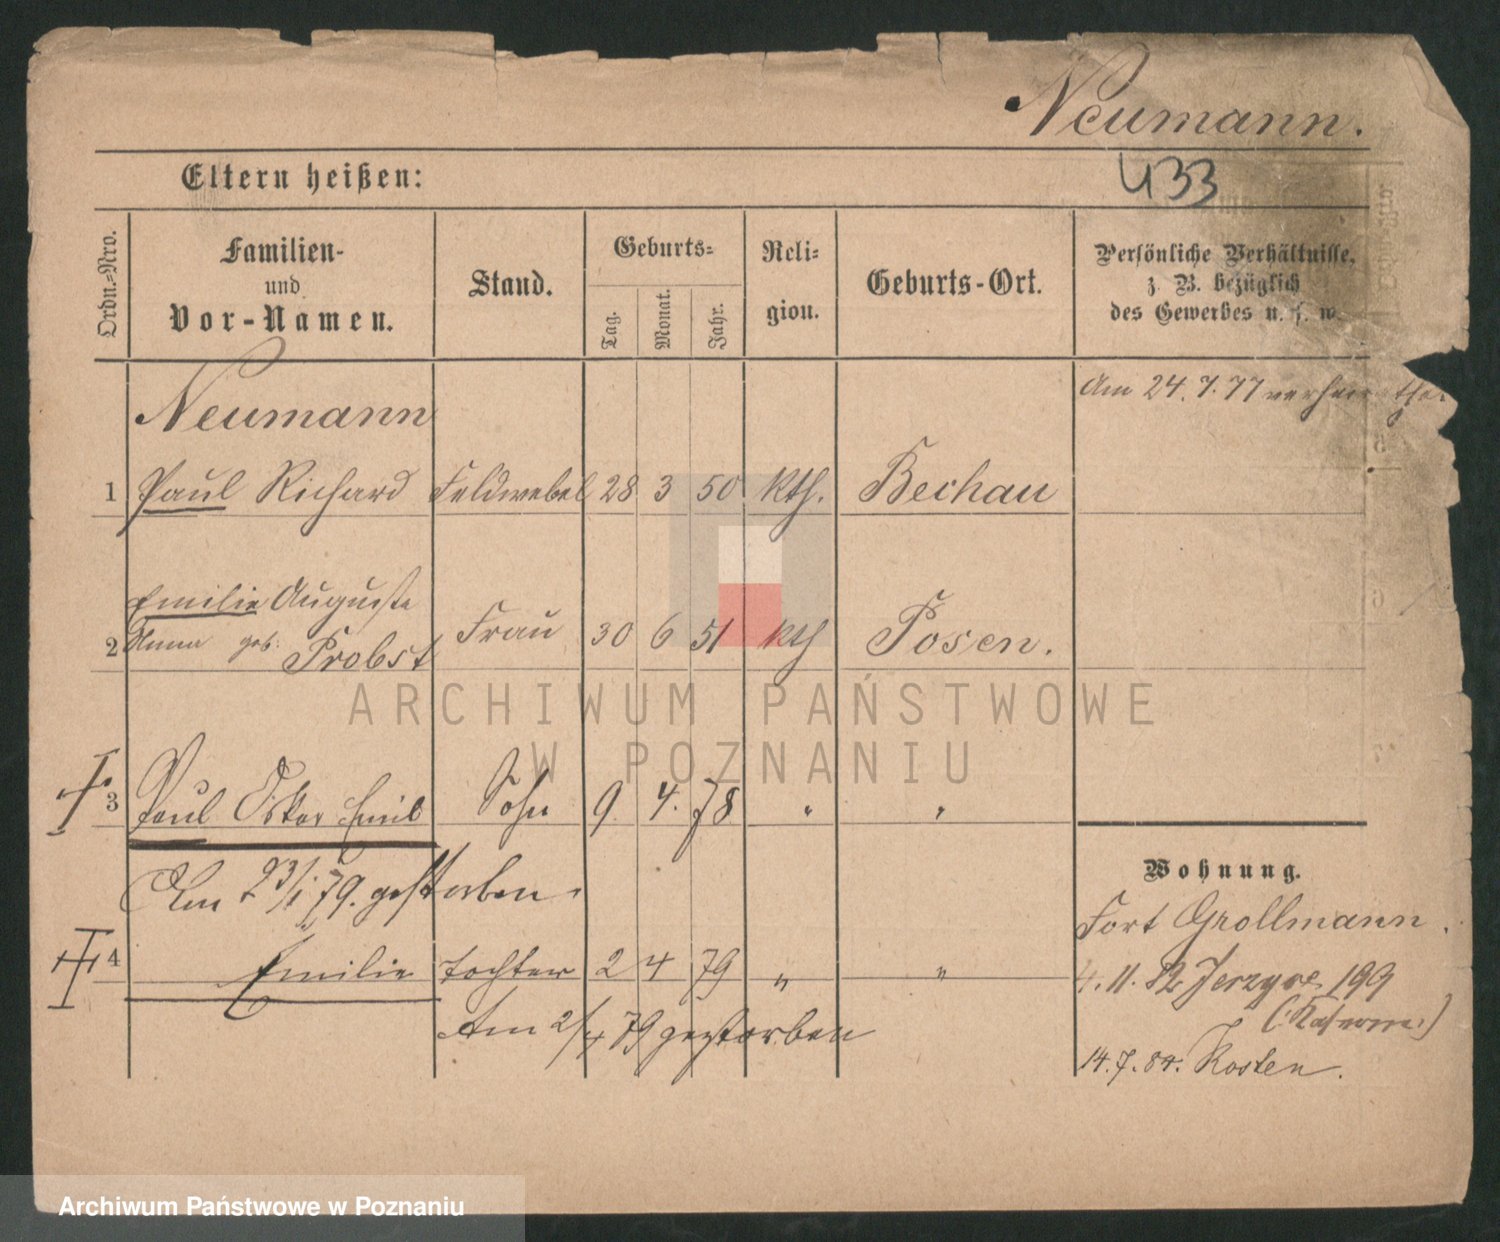 Neumann.
433
Eltern heißen:
Ordn.-Nro.
Familien-
und
Vor-Namen.
Stand.
Geburts-
Tag.
Monat.
Jahr.
Reli-
gion.
Geburts-Ort.
Persönliche Verhältnisse,
z. B. bezüglich
des Gewerbes u. s. w.
Neumann
Am 24. 7. 77
1 Paul Richard Feldwebel 28 3 50 kth. Bechau
Emilie Auguste
2 Anna geb. Probst Frau 30 6 51 kth Posen.
3 Paul Oskar Emil Sohn 9 4. 78 " "
Am 23/1 79. gestorben.
4 Emilie Tochter 2 4 79 " "
Am 2/4 79 gestorben
Wohnung.
Fort Grollmann.
4. 11. 82 Jerzyce 199
14. 7. 84. Kosten.
ARCHIWUM PAŃSTWOWE
W POZNANIU
Archiwum Państwowe w Poznaniu